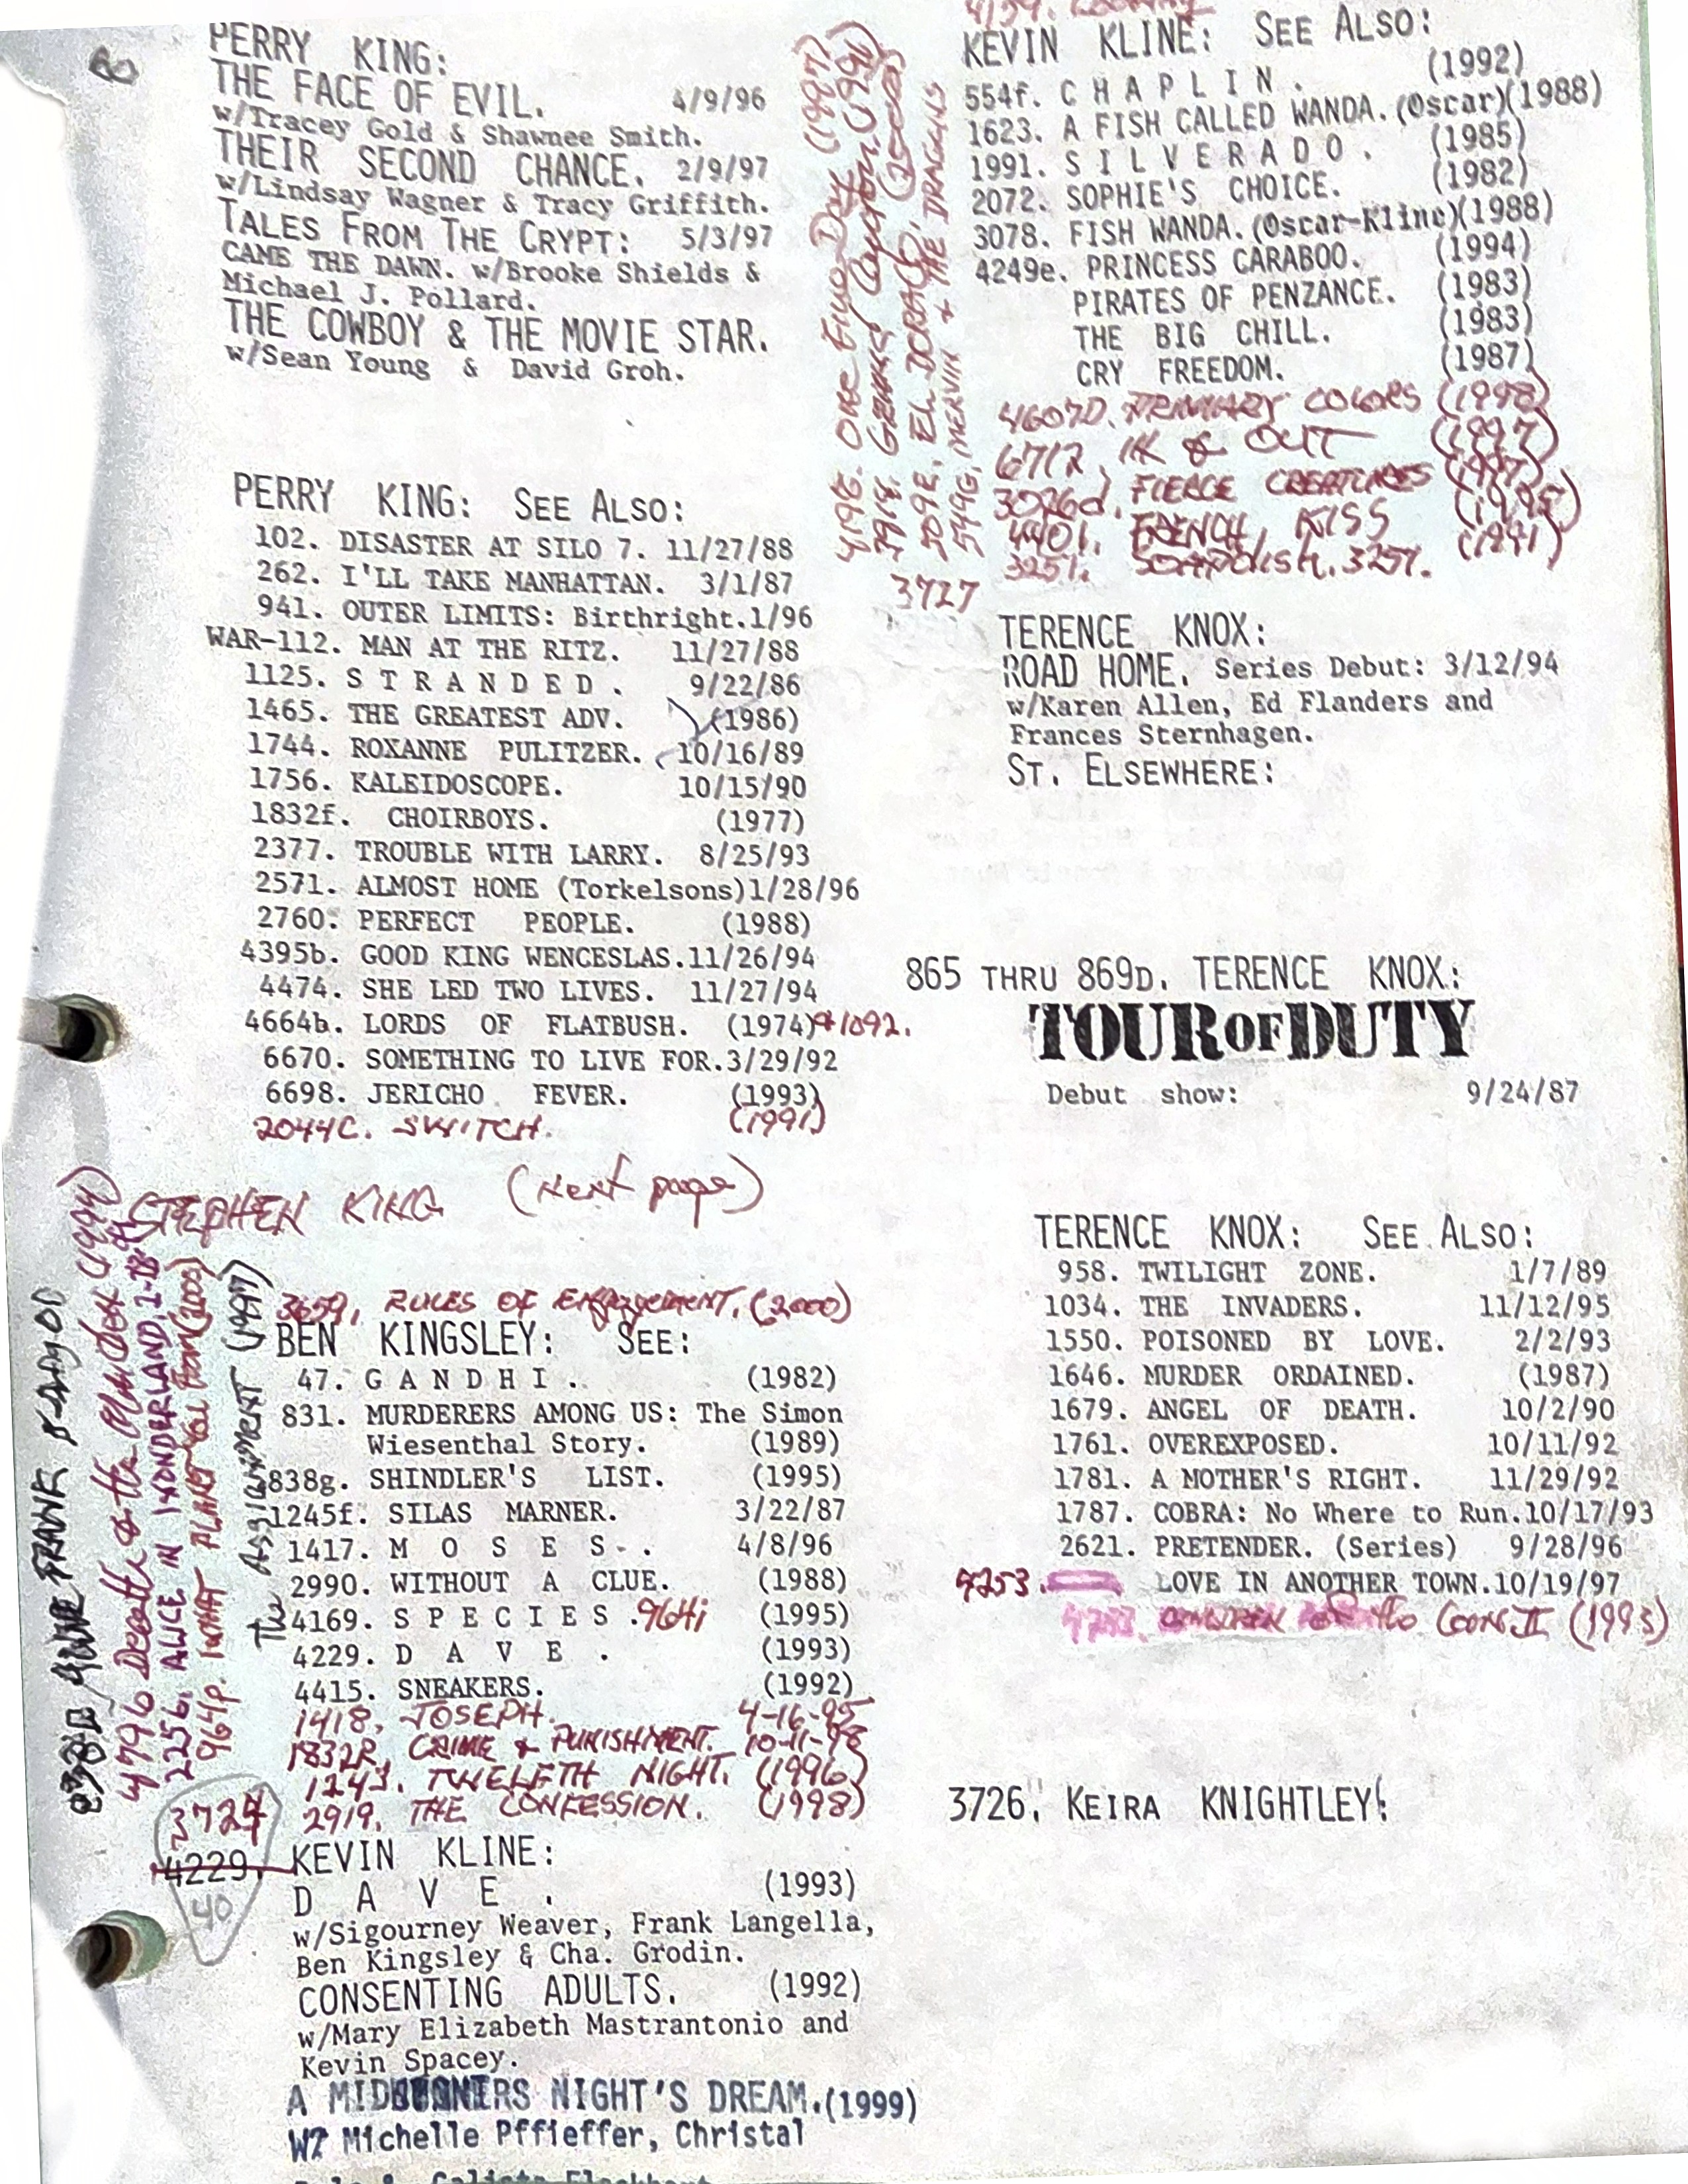 PERRY KING:
THE FACE OF EVIL. 4/9/96
w/Tracey Gold & Shawnee Smith.
THEIR SECOND CHANCE. 2/9/97
w/Lindsay Wagner & Tracy Griffith.
TALES FROM THE CRYPT: 5/3/97
CAME THE DAWN. w/Brooke Shields &
Michael J. Pollard.
THE COWBOY & THE MOVIE STAR.
w/Sean Young & David Groh.
PERRY KING: SEE ALSO:
102. DISASTER AT SILO 7. 11/27/88
262. I'LL TAKE MANHATTAN. 3/1/87
941. OUTER LIMITS: Birthright.1/96
WAR-112. MAN AT THE RITZ. 11/27/88
1125. S T R A N D E D . 9/22/86
1465. THE GREATEST ADV. (1986)
1744. ROXANNE PULITZER. 10/16/89
1756. KALEIDOSCOPE. 10/15/90
1832f. CHOIRBOYS. (1977)
2377. TROUBLE WITH LARRY. 8/25/93
2571. ALMOST HOME (Torkelsons)1/28/96
2760. PERFECT PEOPLE. (1988)
4395b. GOOD KING WENCESLAS.11/26/94
4474. SHE LED TWO LIVES. 11/27/94
4664b. LORDS OF FLATBUSH. (1974)&1092.
6670. SOMETHING TO LIVE FOR.3/29/92
6698. JERICHO FEVER. (1993)
2044C. SWITCH. (1991)
STEPHEN KING (Next page)
3659. RULES OF Engagement. (2000)
BEN KINGSLEY: SEE:
47. G A N D H I . (1982)
831. MURDERERS AMONG US: The Simon
Wiesenthal Story. (1989)
838g. SHINDLER'S LIST. (1995)
1245f. SILAS MARNER. 3/22/87
1417. M O S E S . 4/8/96
2990. WITHOUT A CLUE. (1988)
4169. S P E C I E S .964i (1995)
4229. D A V E . (1993)
4415. SNEAKERS. (1992)
1418. JOSEPH. 4-16-95
1832R. CRIME & PUNISHMENT. 10-11-98
1243. TWELFTH NIGHT. (1996)
2919. THE CONFESSION. (1998)
The Assignment (1997)
964p. WHAT PLANET You From (2000)
2256. ALICE IN WONDERLAND.
4796 Death & the Maiden (1994)
ANNE FRANK
3724
4229.
40
KEVIN KLINE:
D A V E . (1993)
w/Sigourney Weaver, Frank Langella,
Ben Kingsley & Cha. Grodin.
CONSENTING ADULTS. (1992)
w/Mary Elizabeth Mastrantonio and
Kevin Spacey.
A MIDSUMMERS NIGHT'S DREAM.(1999)
W? Michelle Pffieffer, Christal
KEVIN KLINE: SEE ALSO:
554f. C H A P L I N . (1992)
1623. A FISH CALLED WANDA. (Oscar)(1988)
1991. S I L V E R A D O . (1985)
2072. SOPHIE'S CHOICE. (1982)
3078. FISH WANDA. (Oscar-Kline)(1988)
4249e. PRINCESS CARABOO. (1994)
PIRATES OF PENZANCE. (1983)
THE BIG CHILL. (1983)
CRY FREEDOM. (1987)
4607D. PRIMARY COLORS (1998)
6712. IN & OUT (1997)
3026d. FIERCE CREATURES (1997)
4401. FRENCH KISS (1995)
3251. SOAPDISH. 3257. (1991)
One Fine Day (1997)
Grand Canyon
EL DORADO (2000)
& THE DRAGONS
3727
TERENCE KNOX:
ROAD HOME. Series Debut: 3/12/94
w/Karen Allen, Ed Flanders and
Frances Sternhagen.
ST. ELSEWHERE:
865 THRU 869D. TERENCE KNOX:
TOUR OF DUTY
Debut show: 9/24/87
TERENCE KNOX: SEE ALSO:
958. TWILIGHT ZONE. 1/7/89
1034. THE INVADERS. 11/12/95
1550. POISONED BY LOVE. 2/2/93
1646. MURDER ORDAINED. (1987)
1679. ANGEL OF DEATH. 10/2/90
1761. OVEREXPOSED. 10/11/92
1781. A MOTHER'S RIGHT. 11/29/92
1787. COBRA: No Where to Run.10/17/93
2621. PRETENDER. (Series) 9/28/96
4253. LOVE IN ANOTHER TOWN.10/19/97
CHILDREN OF the CORN II (1993)
3726. KEIRA KNIGHTLEY: